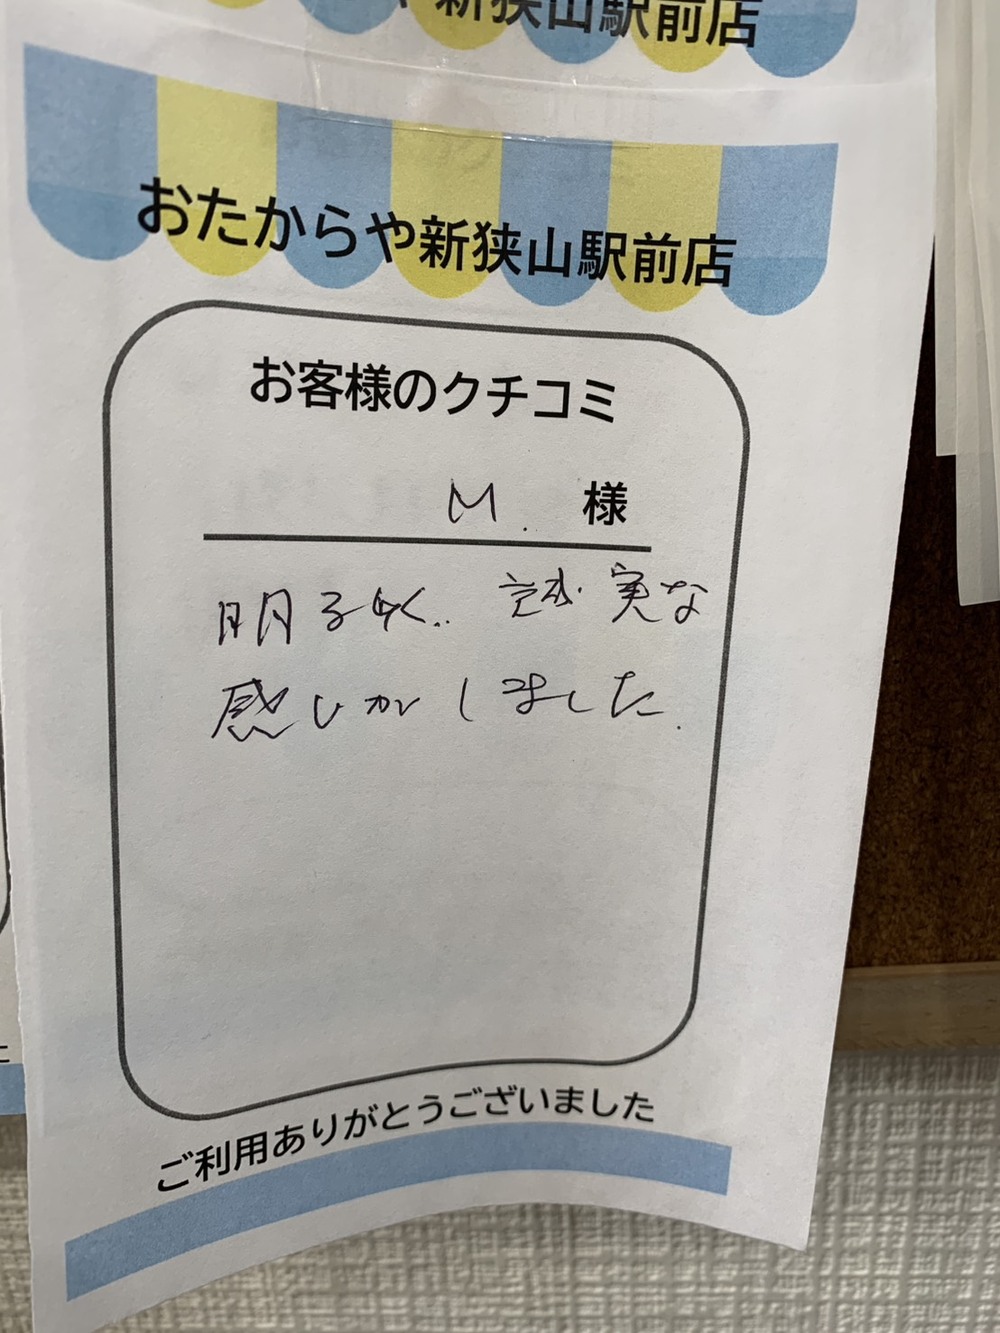 新狭山駅前店
おたからや新狭山駅前店
お客様のクチコミ
M. 様
明るく、誠実な
感じがしました.
ご利用ありがとうございました